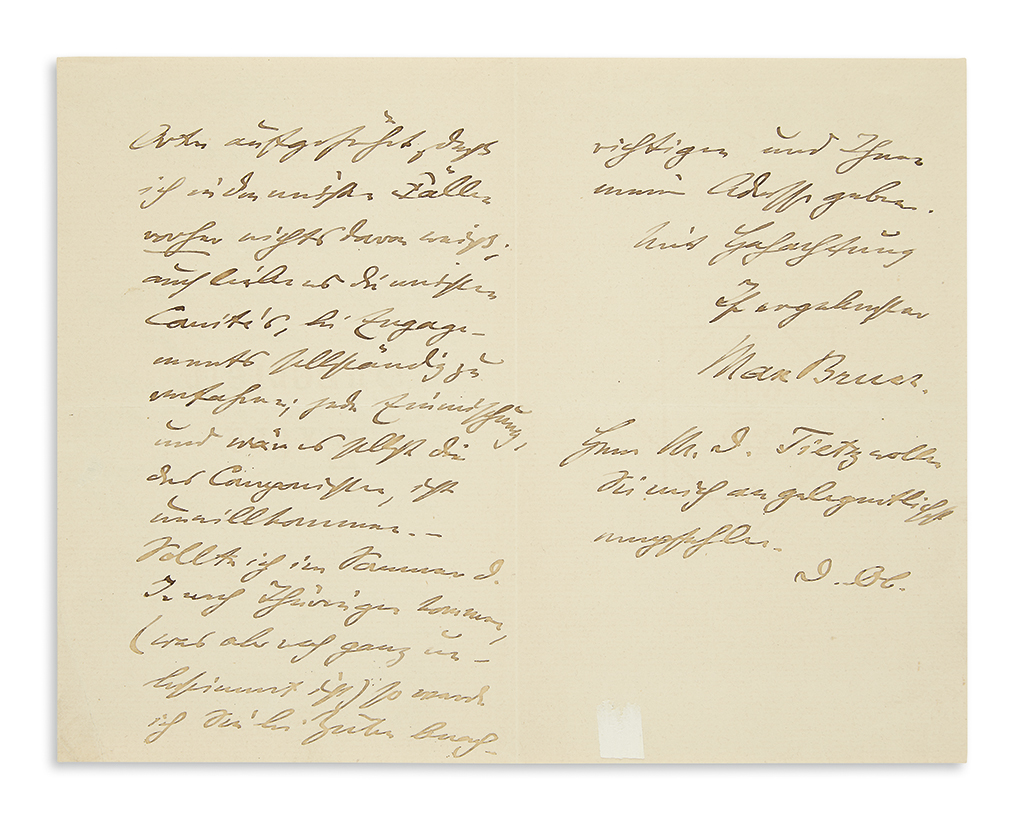 Orten aufgeführt, daß
ich in den meisten Fällen
vorher nichts davon weiß;
auch lieben es die meisten
Comités, bei Engage-
ments selbständig zu
verfahren; jede Einmischung,
und wär' es selbst die
des Componisten, ist
unwillkommen. –
Sollte ich im Sommer d.
J. nach Thüringen kommen,
(was aber noch ganz un-
bestimmt ist) so werde
ich Sie bei Zeiten benach-
richtigen und Ihnen
meine Adresse geben.
Mit Hochachtung
Ihr ergebenster
Max Bruch.
Herrn M. D. Tietz wollen
Sie mich angelegentlichst
empfehlen.
D. Ob.